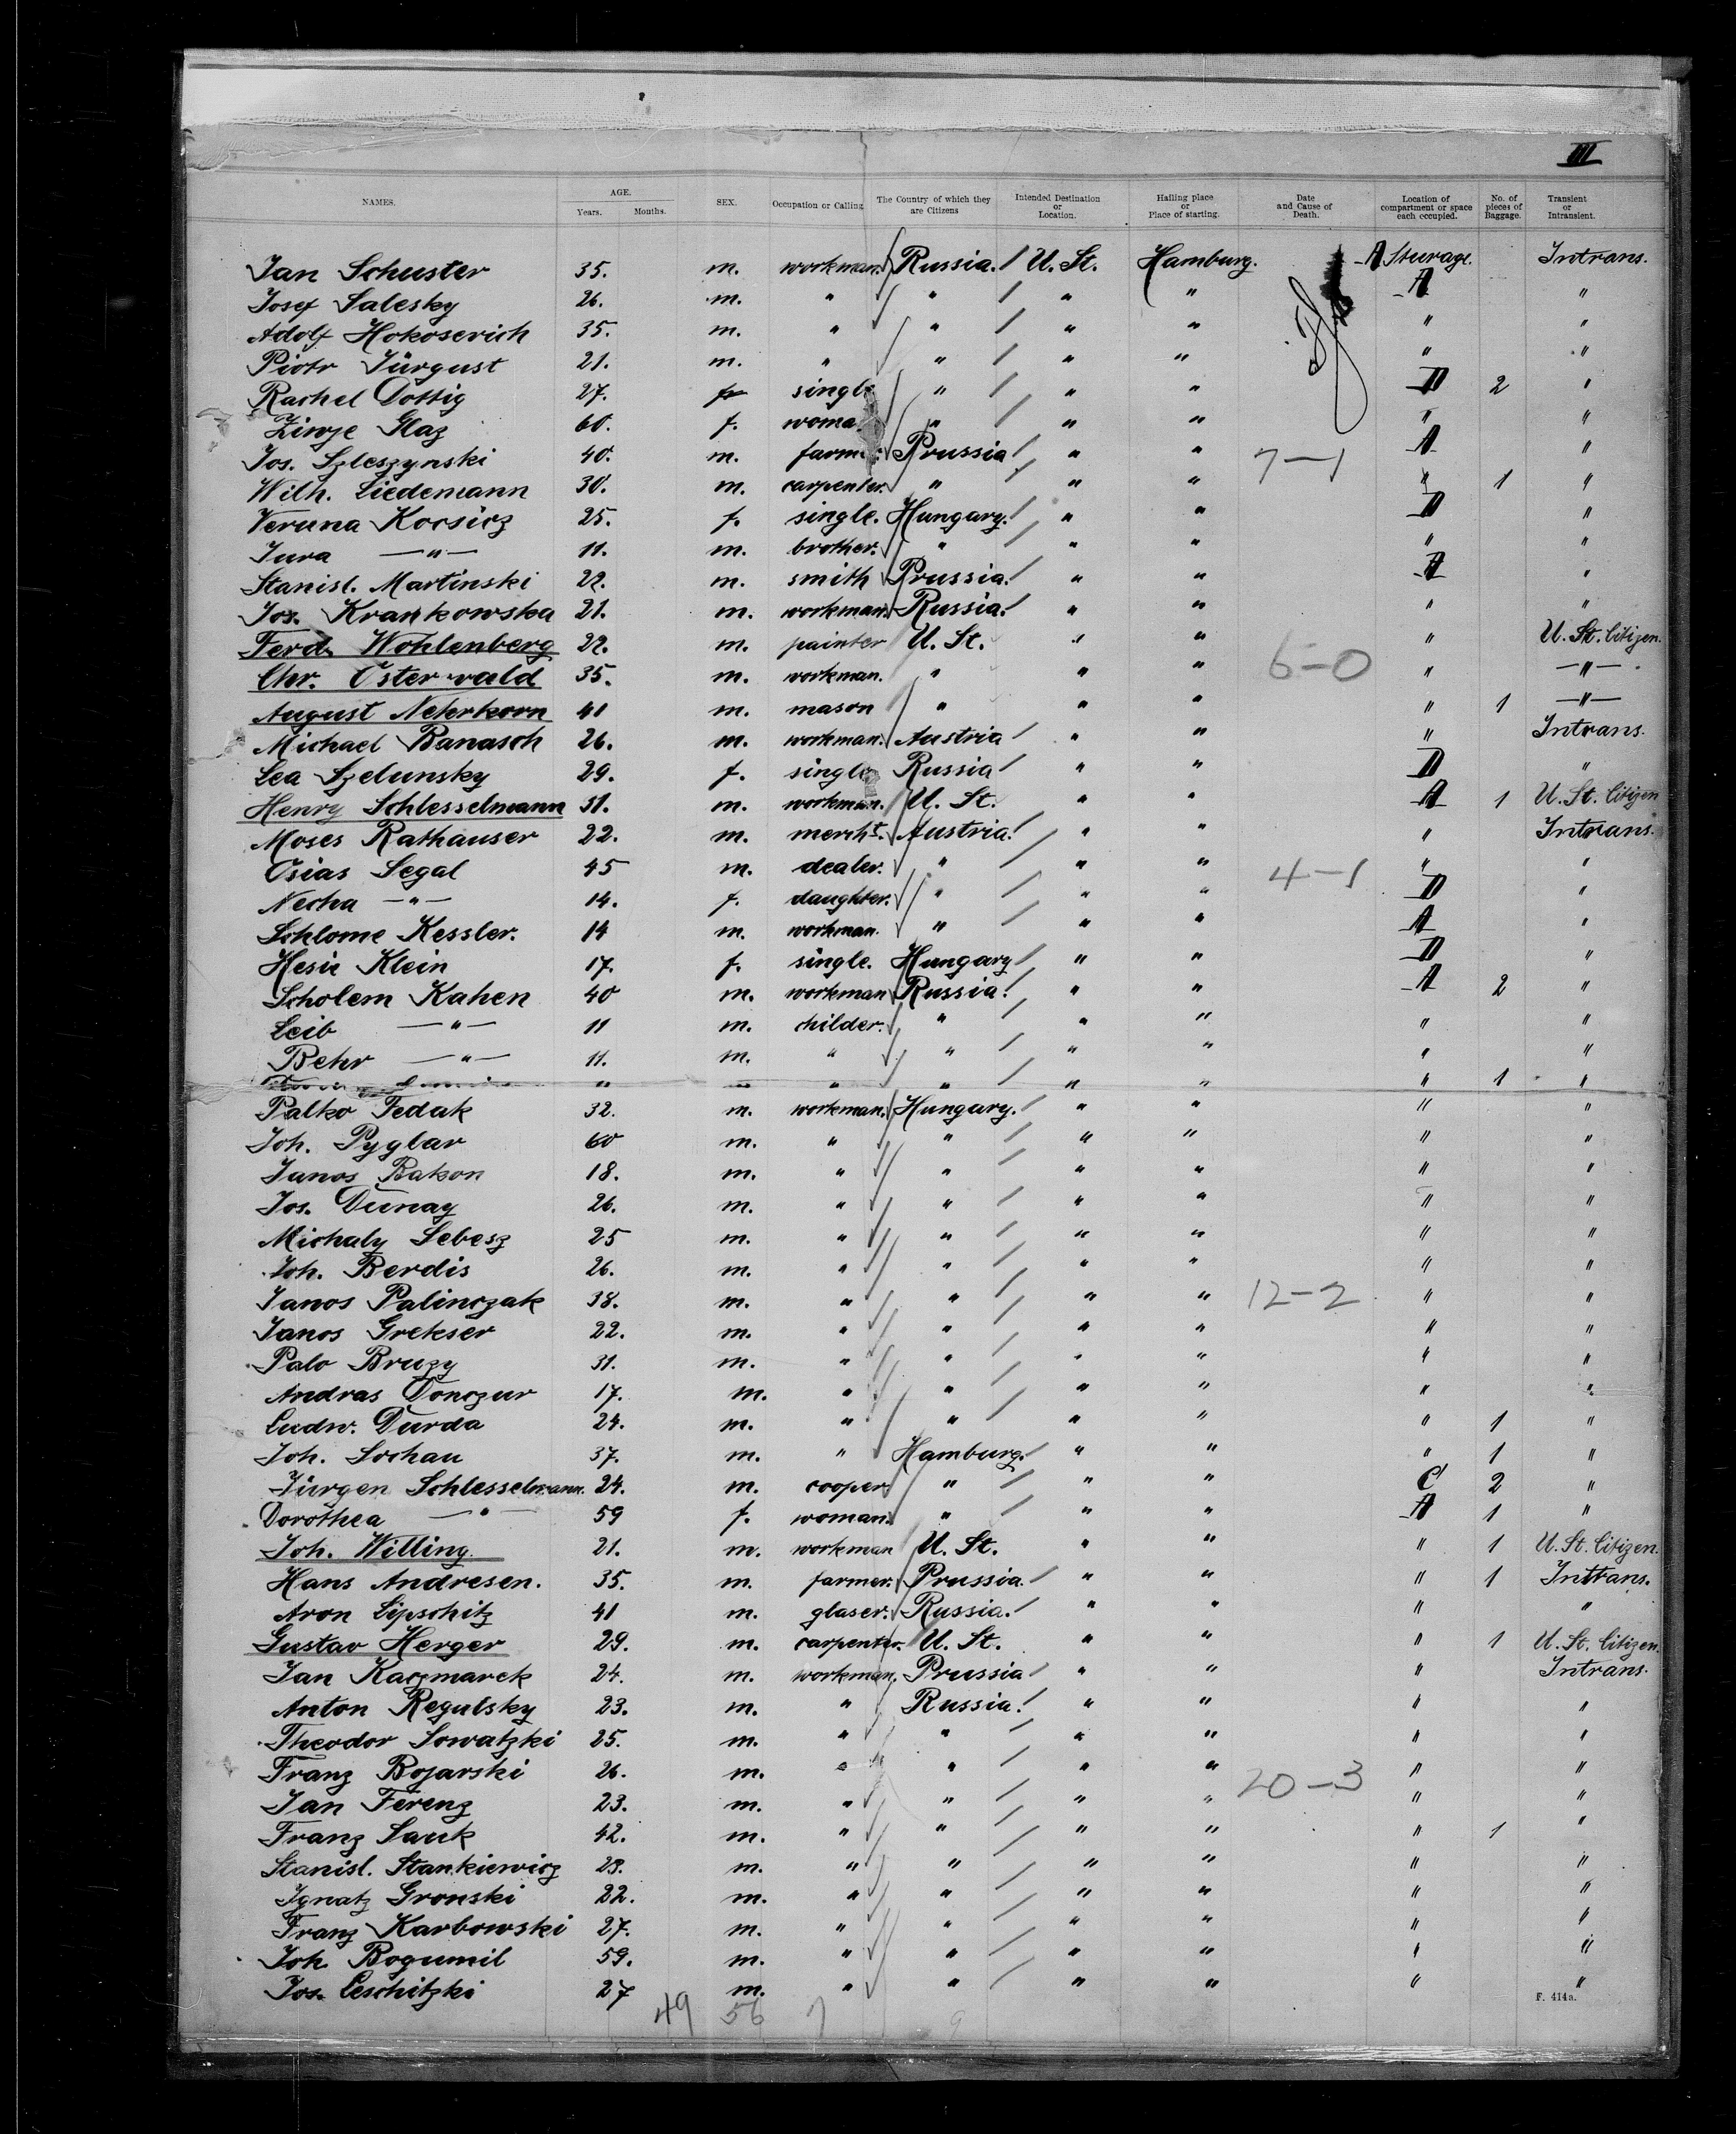 III
NAMES. AGE. Years. Months. SEX. Occupation or Calling The Country of which they are Citizens Intended Destination or Location. Hailing place or Place of starting. Date and Cause of Death. Location of compartment or space each occupied. No. of pieces of Baggage. Transient or Intransient.
Jan Schuster 35. m. workman. Russia. / U. St. Hamburg. A Sturage. Intrans.
Josef Salesky 26. m. " " / " " A "
Adolf Hokoserich 35. m. " " / " " " "
Piotr Jürgust 21. m. " " / " " " "
Rachel Dottig 27. f. single " / " " D 2 "
Zinge Glaz 60. f. woma " / " " " "
Jos. Szleszynski 40. m. farm Prussia / " " 7-1 A "
Wilh. Liedemann 30. m. carpenter. " / " " " 1 "
Veruna Kocsicz 25. f. single. Hungary. / " " D "
Jura —"— 11. m. brother. " / " " " "
Stanisl. Martinski 22. m. smith Prussia. / " " A "
Jos. Krankowska 21. m. workman. Russia. / " " " "
Ferd. Wohlenberg 22. m. painter U. St. " " " U. St. Citizen.
Chr. Osterwald 35. m. workman. " " " 6-0 " —"—
August Nehrkorn 41 m. mason " " " " 1 —"—
Michael Banasch 26. m. workman. Austria / " " " Intrans.
Lea Szelunsky 29. f. single Russia / " " D "
Henry Schlesselmann 31. m. workman. U. St. " " A 1 U. St. Citizen
Moses Rathauser 22. m. mercht. Austria. / " " " Intrans.
Osias Segal 45 m. dealer. " / " " 4-1 " "
Necha —"— 14. f. daughter. " / " " D "
Schlome Kessler. 14 m. workman. " / " " A "
Hesie Klein 17. f. single. Hungary / " " D "
Scholem Kahen 40 m. workman Russia. / " " A 2 "
Leib —"— 11 m. childer. " / " " " "
Behr —"— 11. m. " " / " " " "
" " / " " " 1 "
Palko Fedak 32. m. workman. Hungary. / " " " "
Joh. Pyglar 60 m. " " / " " " "
Janos Bakon 18. m. " " / " " " "
Jos. Dunay 26. m. " " / " " " "
Michaly Sebesz 25 m. " " / " " " "
Joh. Berdis 26. m. " " / " " " "
Janos Palinczak 38. m. " " / " " 12-2 " "
Janos Grekser 22. m. " " / " " " "
Palo Bruzy 31. m. " " / " " " "
Andras Donczur 17. m. " " / " " " "
Ludw. Durda 24. m. " " / " " " 1 "
Joh. Sochau 37. m. " Hamburg. / " " " 1 "
Jürgen Schlesselmann. 24. m. cooper " / " " C 2 "
Dorothea —"— 59 f. woman. " / " " A 1 "
Joh. Willing. 21. m. workman U. St. " " " 1 U. St. Citizen.
Hans Andresen. 35. m. farmer. Prussia. / " " " 1 Intrans.
Aron Lipschitz 41 m. glaser. Russia. / " " " "
Gustav Herger 29. m. carpenter. U. St. " " " 1 U. St. Citizen.
Jan Kaczmarek 24. m. workman. Prussia / " " " Intrans.
Anton Regulsky 23. m. " Russia. / " " " "
Theodor Sowatzki 25. m. " " / " " " "
Franz Bojarski 26. m. " " / " " 20-3 " "
Jan Ferenz 23. m. " " / " " " "
Franz Sauk 42. m. " " / " " " 1 "
Stanisl. Stankiewicz 23. m. " " / " " " "
Ignatz Gronski 22. m. " " / " " " "
Franz Karbowski 27. m. " " / " " " "
Joh. Bogumil 59. m. " " / " " " "
Jos. Leschitzki 27 m. " " / " " " "
F. 414a.
49 56 7 9